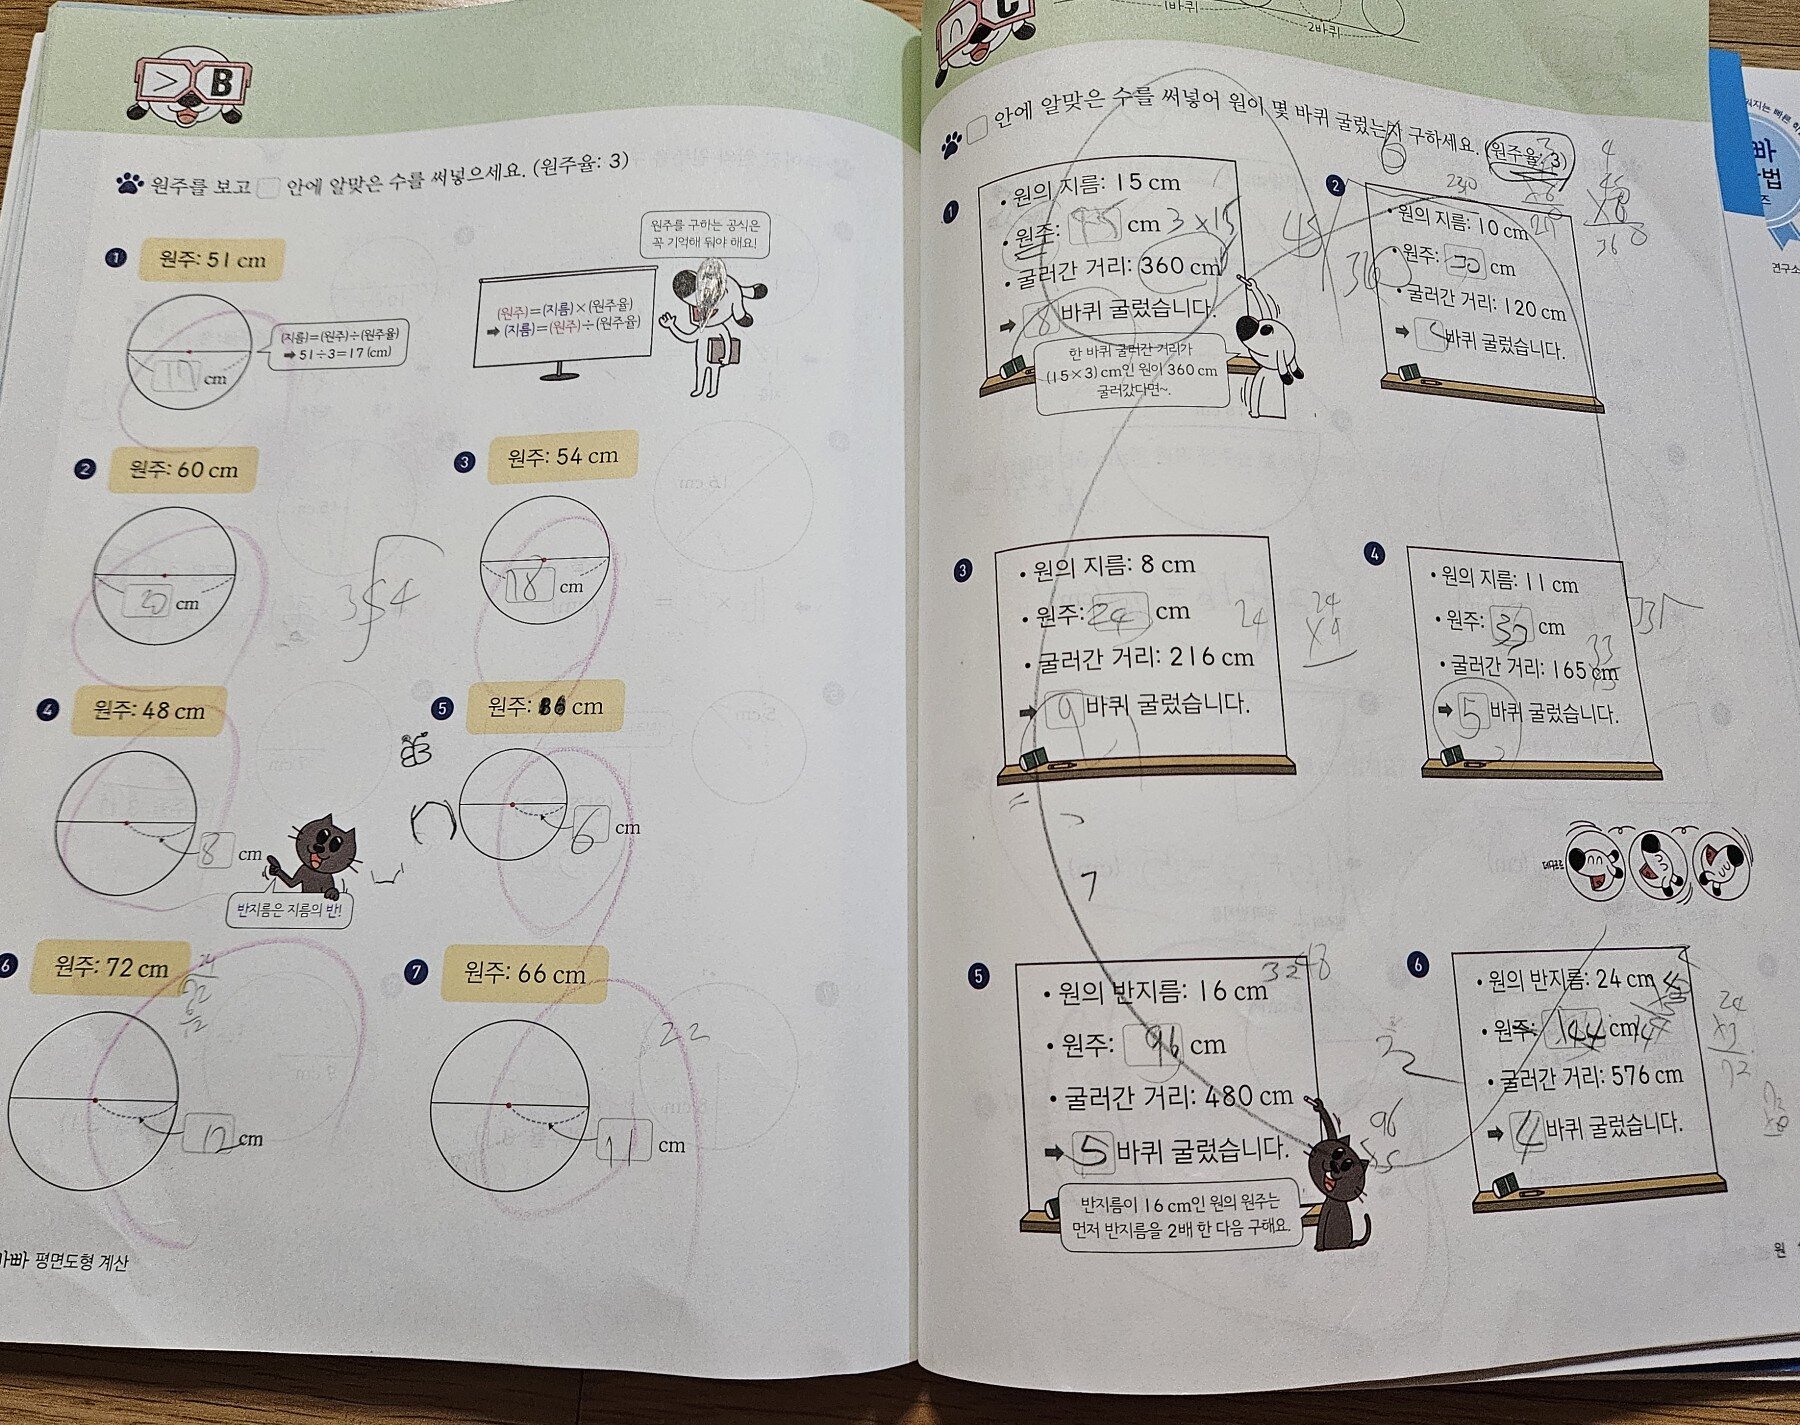 B
원주를 보고 □ 안에 알맞은 수를 써넣으세요. (원주율: 3)
1 원주: 51 cm
(지름)=(원주)÷(원주율)
➡ 51÷3=17 (cm)
17 cm
원주를 구하는 공식은
꼭 기억해 둬야 해요!
(원주)=(지름)×(원주율)
➡ (지름)=(원주)÷(원주율)
2 원주: 60 cm
20 cm
3 원주: 54 cm
18 cm
354
4 원주: 48 cm
8 cm
반지름은 지름의 반!
5 원주: 36 cm
6 cm
6 원주: 72 cm
12 cm
7 원주: 66 cm
22
11 cm
빠 평면도형 계산
C
1바퀴
2바퀴
□ 안에 알맞은 수를 써넣어 원이 몇 바퀴 굴렀는지 구하세요. (원주율: 3)
1
• 원의 지름: 15 cm
• 원주: 45 cm 3×15
• 굴러간 거리: 360 cm
➡ 8 바퀴 굴렀습니다.
한 바퀴 굴러간 거리가
(15×3) cm인 원이 360 cm
굴러갔다면~.
45
2
• 원의 지름: 10 cm
• 원주: 30 cm
• 굴러간 거리: 120 cm
➡ 4 바퀴 굴렀습니다.
3
• 원의 지름: 8 cm
• 원주: 24 cm
• 굴러간 거리: 216 cm
➡ 9 바퀴 굴렀습니다.
24
24
×9
4
• 원의 지름: 11 cm
• 원주: 33 cm
• 굴러간 거리: 165 cm
➡ 5 바퀴 굴렀습니다.
7
데굴데굴
5
• 원의 반지름: 16 cm
• 원주: 96 cm
• 굴러간 거리: 480 cm
➡ 5 바퀴 굴렀습니다.
반지름이 16 cm인 원의 원주는
먼저 반지름을 2배 한 다음 구해요.
96
×5
6
• 원의 반지름: 24 cm
• 원주: 144 cm
• 굴러간 거리: 576 cm
➡ 4 바퀴 굴렀습니다.
24
×3
72
원
빠른
연구소